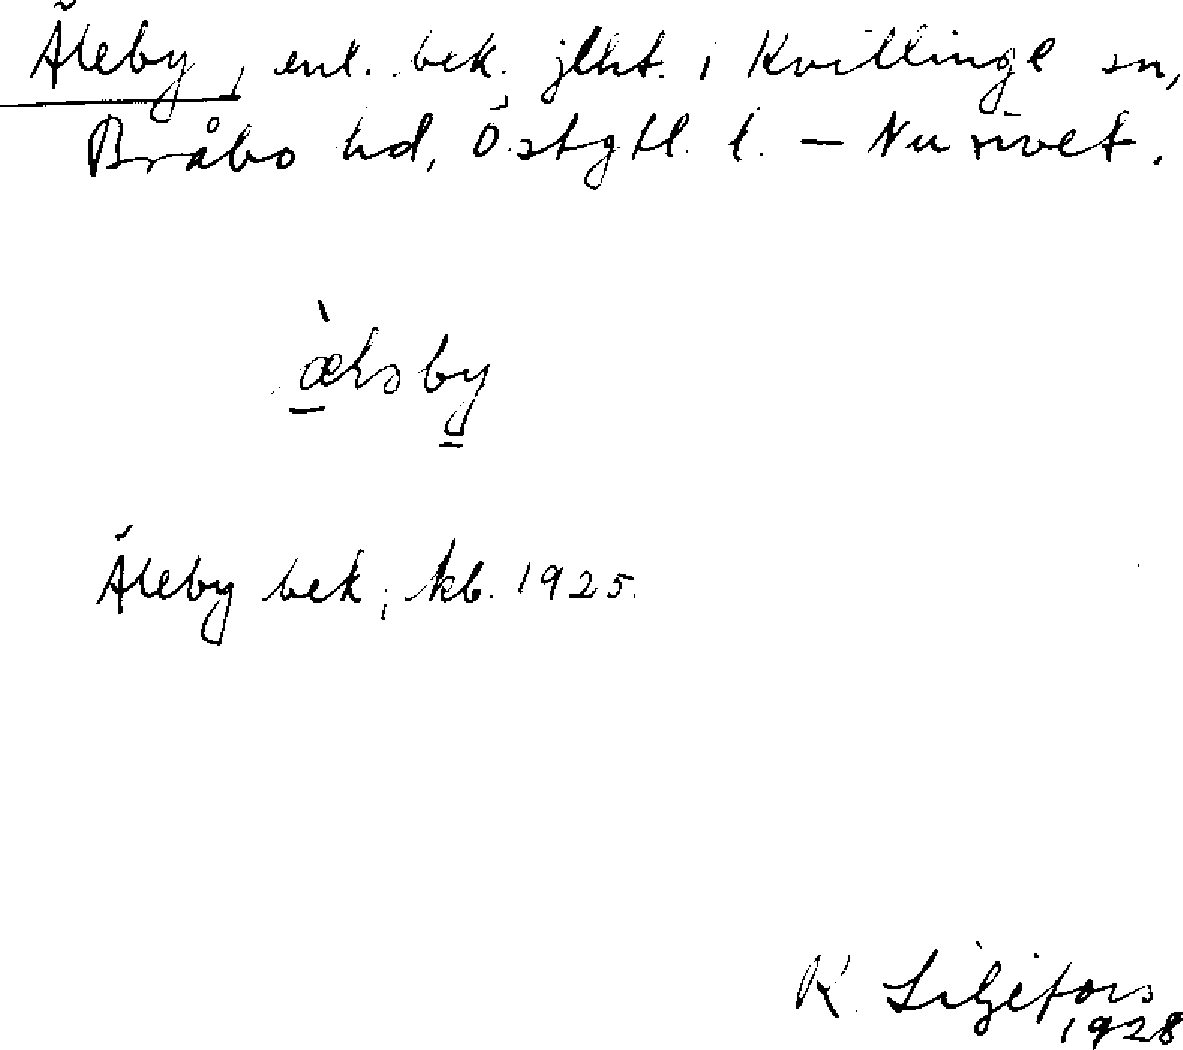 Äleby, enl. bek. jlht. i Kvillinge sn,
Bråbo hd, Östgtl. l. — Nu rivet.
Äleby bek; kb. 1925.
K. Liljefors
1928